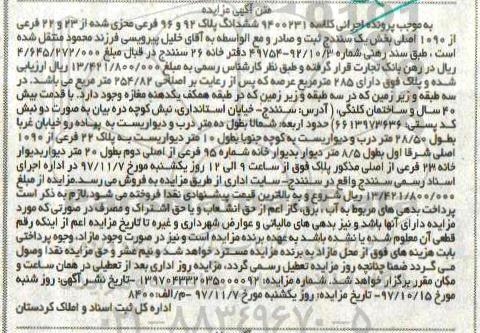 متن آگهی مزایده
به موجب پرونده اجرائی کلاسه ۹۴۰۰۲۳۱ ششدانگ پلاک ۹۲ و ۹۶ فرعی مجزی شده از ۲۳ و ۲۲ فرعی
از ۱۰۹۰ اصلی بخش یک سنندج ثبت و صادر و مع الواسطه به آقای خلیل پیرویسی فرزند محمود منتقل شده
است ، طبق سند رهنی شماره ۹۲/۱۰/۳-۴۹۷۵۴ دفترخانه ۲۶ سنندج در قبال مبلغ ۴/۶۴۵/۲۷۲/۰۰۰
ریال در رهن بانک تجارت قرار گرفته و طبق نظر کارشناس رسمی به مبلغ ۱۳/۴۲۱/۸۰۰/۰۰۰ ریال ارزیابی
شده و پلاک فوق دارای ۲۸۵ مترمربع عرصه که پس از رعایت بر اصلاحی ۲۵۴/۸۲ متر مربع می باشد. در
سه طبقه و زیر زمین که در سه طبقه و زیر زمین که در طبقه همکف یکدهنه مغازه وجود دارد. با قدمت بیش
۴۰ سال و ساختمان کلنگی، ( آدرس: سنندج- خیابان استانداری، نبش کوچه دره بیان به صورت دو نبش
کد پستی: ۶۶۱۳۹۷۳۶۳۶) حدود اربعه: شمالا بطول ده متر درب و دیواریست به پیاده رو خیابان غربا
بطول ۲۸/۵۰ متر درب و دیواریست به کوچه جنوبا بطول ۱۰ متر دیواریست به پلاک ۲۲ فرعی از ۱۰۹۰
اصلی شرقا اول بطول ۸/۵ متر دیوار بدیوار خانه شماره ۹۵ فرعی از اصلی دوم بطول ۲۰ متر دیواربدیوار
خانه ۲۳ فرعی از اصلی مذکور پلاک فوق از ساعت ۹ الی ۱۲ روز یکشنبه مورخ ۹۷/۱۱/۷ در اداره اجرای
اسناد رسمی سنندج واقع در سنندج- سایت اداری از طریق مزایده به فروش می رسد. مزایده از مبلغ
۱۳/۴۲۱/۸۰۰/۰۰۰ ریال شروع و به بالاترین قیمت پیشنهادی نقدا فروخته می شود. لازم به ذکر است
پرداخت بدهی های مربوط به آب، برق، گاز اعم از حق انشعاب و یا حق اشتراک و مصرف در صورتی که مورد
مزایده دارای آنها باشد و نیز بدهی های مالیاتی و عوارض شهرداری و غیره تا تاریخ مزایده اعم از اینکه رقم
قطعی آن معلوم شده یا نشده باشد به عهده برنده مزایده است و نیز در صورت وجود مازاد، وجوه پرداختی
بابت هزینه های فوق از محل مازاد به برنده مزایده مسترد خواهد شد و نیم عشر و حق مزایده نقدا وصول
می گردد ضمنا چنانچه روز مزایده تعطیل رسمی گردد، مزایده روز اداری بعد از تعطیلی در همان ساعت و
مکان مقرر برگزار خواهد شد. شماره آگهی: ۱۳۹۷۰۴۳۳۲۰۳۵۰۰۰۰۹۲- تاریخ نشر آگهی: روز شنبه
مورخ ۹۷/۱۰/۱۵- تاریخ مزایده: روز یکشنبه مورخ ۹۷/۱۱/۷ -م/الف: ۸۴۰۰
اداره کل ثبت اسناد و املاک کردستان
۰۲۱-۸۸۳۴۹۶۷۰-۵